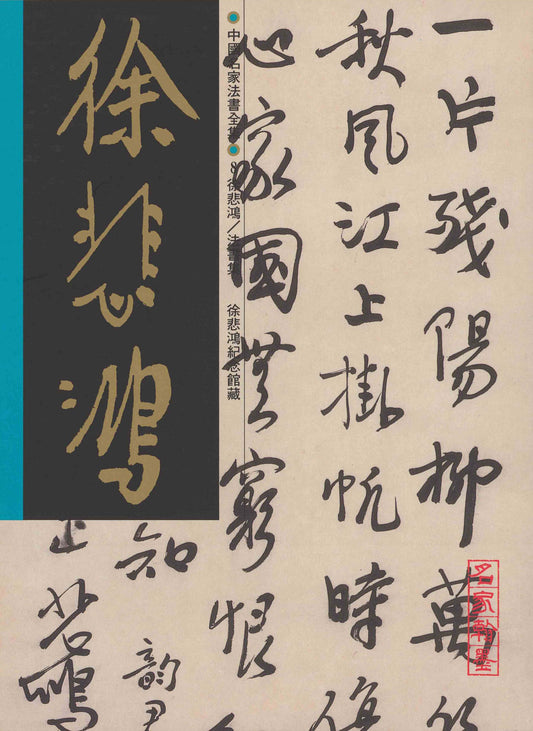 徐悲鴻
中國名家法書全集
8
徐悲鴻／法書集
徐悲鴻紀念館藏
一片殘陽柳萬
秋風江上掛帆時
心家國無窮恨
知
韵
悲鴻
名家翰墨